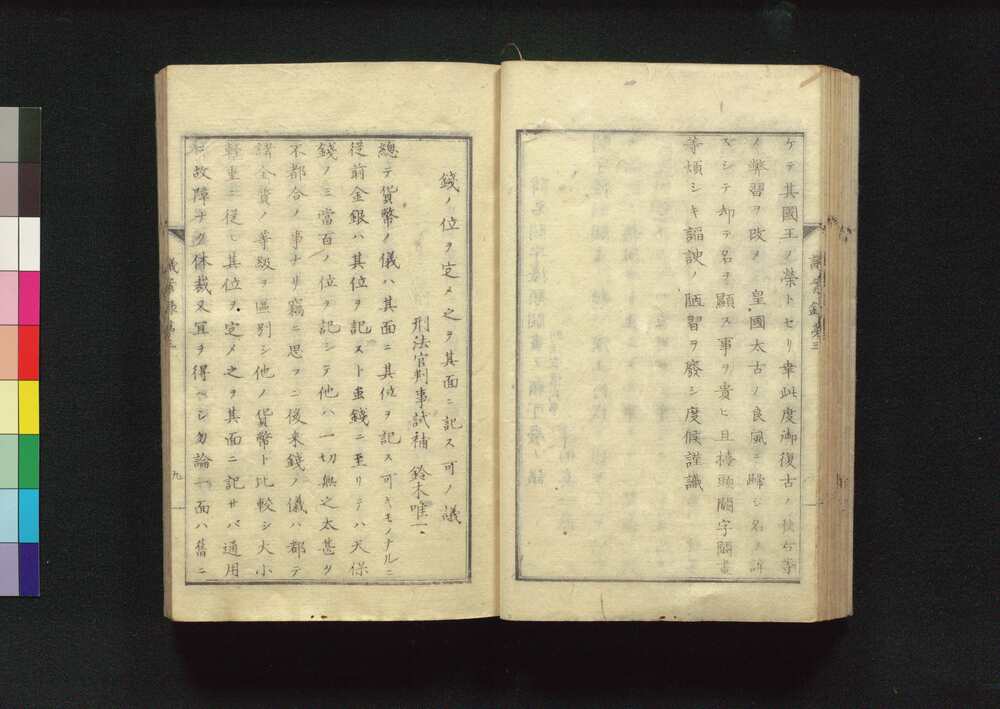 ケテ其國王ノ榮トセリ幸此度御復古ノ使ら等
ノ弊習ヲ改メ皇國太古ノ良風ニ歸シ名ヲ諱
ズシテ却テ名ヲ顯ス事ヲ貴ヒ且擡頭闕字闕畫
等煩シキ謳諛ノ陋習ヲ廢シ度候謹議
議案録第三
錢ノ位ヲ定メ之ヲ其面ニ記ス可ノ議
刑法官判事試補 鈴木唯一
總テ貨幣ノ儀ハ其面ニ其位ヲ記ス可キモノナルニ
從前金銀ハ其位ヲ記スト虽錢ニ至リテハ天保
錢ノミ當百ノ位ヲ記シテ他ハ一切無之太甚タ
不都合ノ事ナリ竊ニ思フニ後来錢ノ儀ハ都テ
諸金貨ノ等級ヲ區別シ他ノ貨幣ト比較シ大小
輕重ニ従ヒ其位ヲ定メ之ヲ其面ニ記サバ通用
故障ナク体裁又宜ヲ得ベシ勿論一面ハ舊ニ
議案録第三
九